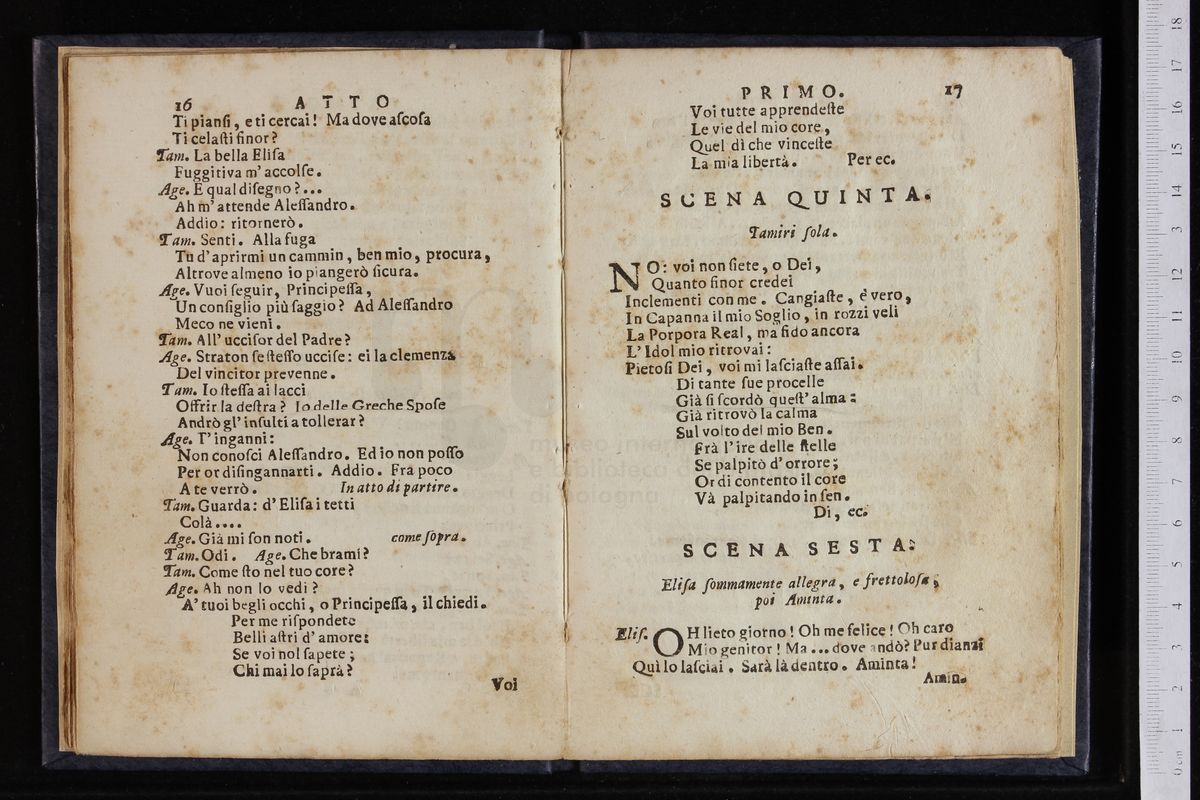 16 ATTO
Ti pianſi, e ti cercai! Ma dove aſcoſa
Ti celaſti finor?
Tam. La bella Eliſa
Fuggitiva m' accolſe.
Age. E qual diſegno?...
Ah m' attende Aleſſandro.
Addio: ritornerò.
Tam. Senti. Alla fuga
Tu d' aprirmi un cammin, ben mio, procura,
Altrove almeno io piangerò ſicura.
Age. Vuoi ſeguir, Principeſſa,
Un conſiglio più ſaggio? Ad Aleſſandro
Meco ne vieni.
Tam. All' ucciſor del Padre?
Age. Straton ſe ſteſſo ucciſe: ei la clemenza
Del vincitor prevenne.
Tam. Io ſteſſa ai lacci
Offrir la deſtra? Io delle Greche Spoſe
Andrò gl' inſulti a tollerar?
Age. T' inganni:
Non conoſci Aleſſandro. Ed io non poſſo
Per or diſingannarti. Addio. Fra poco
A te verrò. In atto di partire.
Tam. Guarda: d' Eliſa i tetti
Colà....
Age. Già mi ſon noti. come ſopra.
Tam. Odi. Age. Che brami?
Tam. Come ſto nel tuo core?
Age. Ah non lo vedi?
A' tuoi begli occhi, o Principeſſa, il chiedi.
Per me riſpondete
Belli aſtri d' amore:
Se voi nol ſapete;
Chi mai lo ſaprà?
Voi
PRIMO. 17
Voi tutte apprendeſte
Le vie del mio core,
Quel dì che vinceſte
La mia libertà. Per ec.
SCENA QUINTA.
Tamiri ſola.
NO: voi non ſiete, o Dei,
Quanto finor credei
Inclementi con me. Cangiaſte, è vero,
In Capanna il mio Soglio, in rozzi veli
La Porpora Real, ma fido ancora
L' Idol mio ritrovai:
Pietoſi Dei, voi mi laſciaſte aſſai.
Di tante ſue procelle
Già ſi ſcordò queſt' alma:
Già ritrovò la calma
Sul volto del mio Ben.
Frà l' ire delle ſtelle
Se palpitò d' orrore;
Or di contento il core
Và palpitando in ſen.
Di, ec.
SCENA SESTA.
Eliſa ſommamente allegra, e frettoloſa;
poi Aminta.
Eliſ. OH lieto giorno! Oh me felice! Oh caro
Mio genitor! Ma... dove andò? Pur dianzi
Quì lo laſciai. Sarà là dentro. Aminta!
Amin.
0 cm 1 2 3 4 5 6 7 8 9 10 11 12 13 14 15 16 17 18